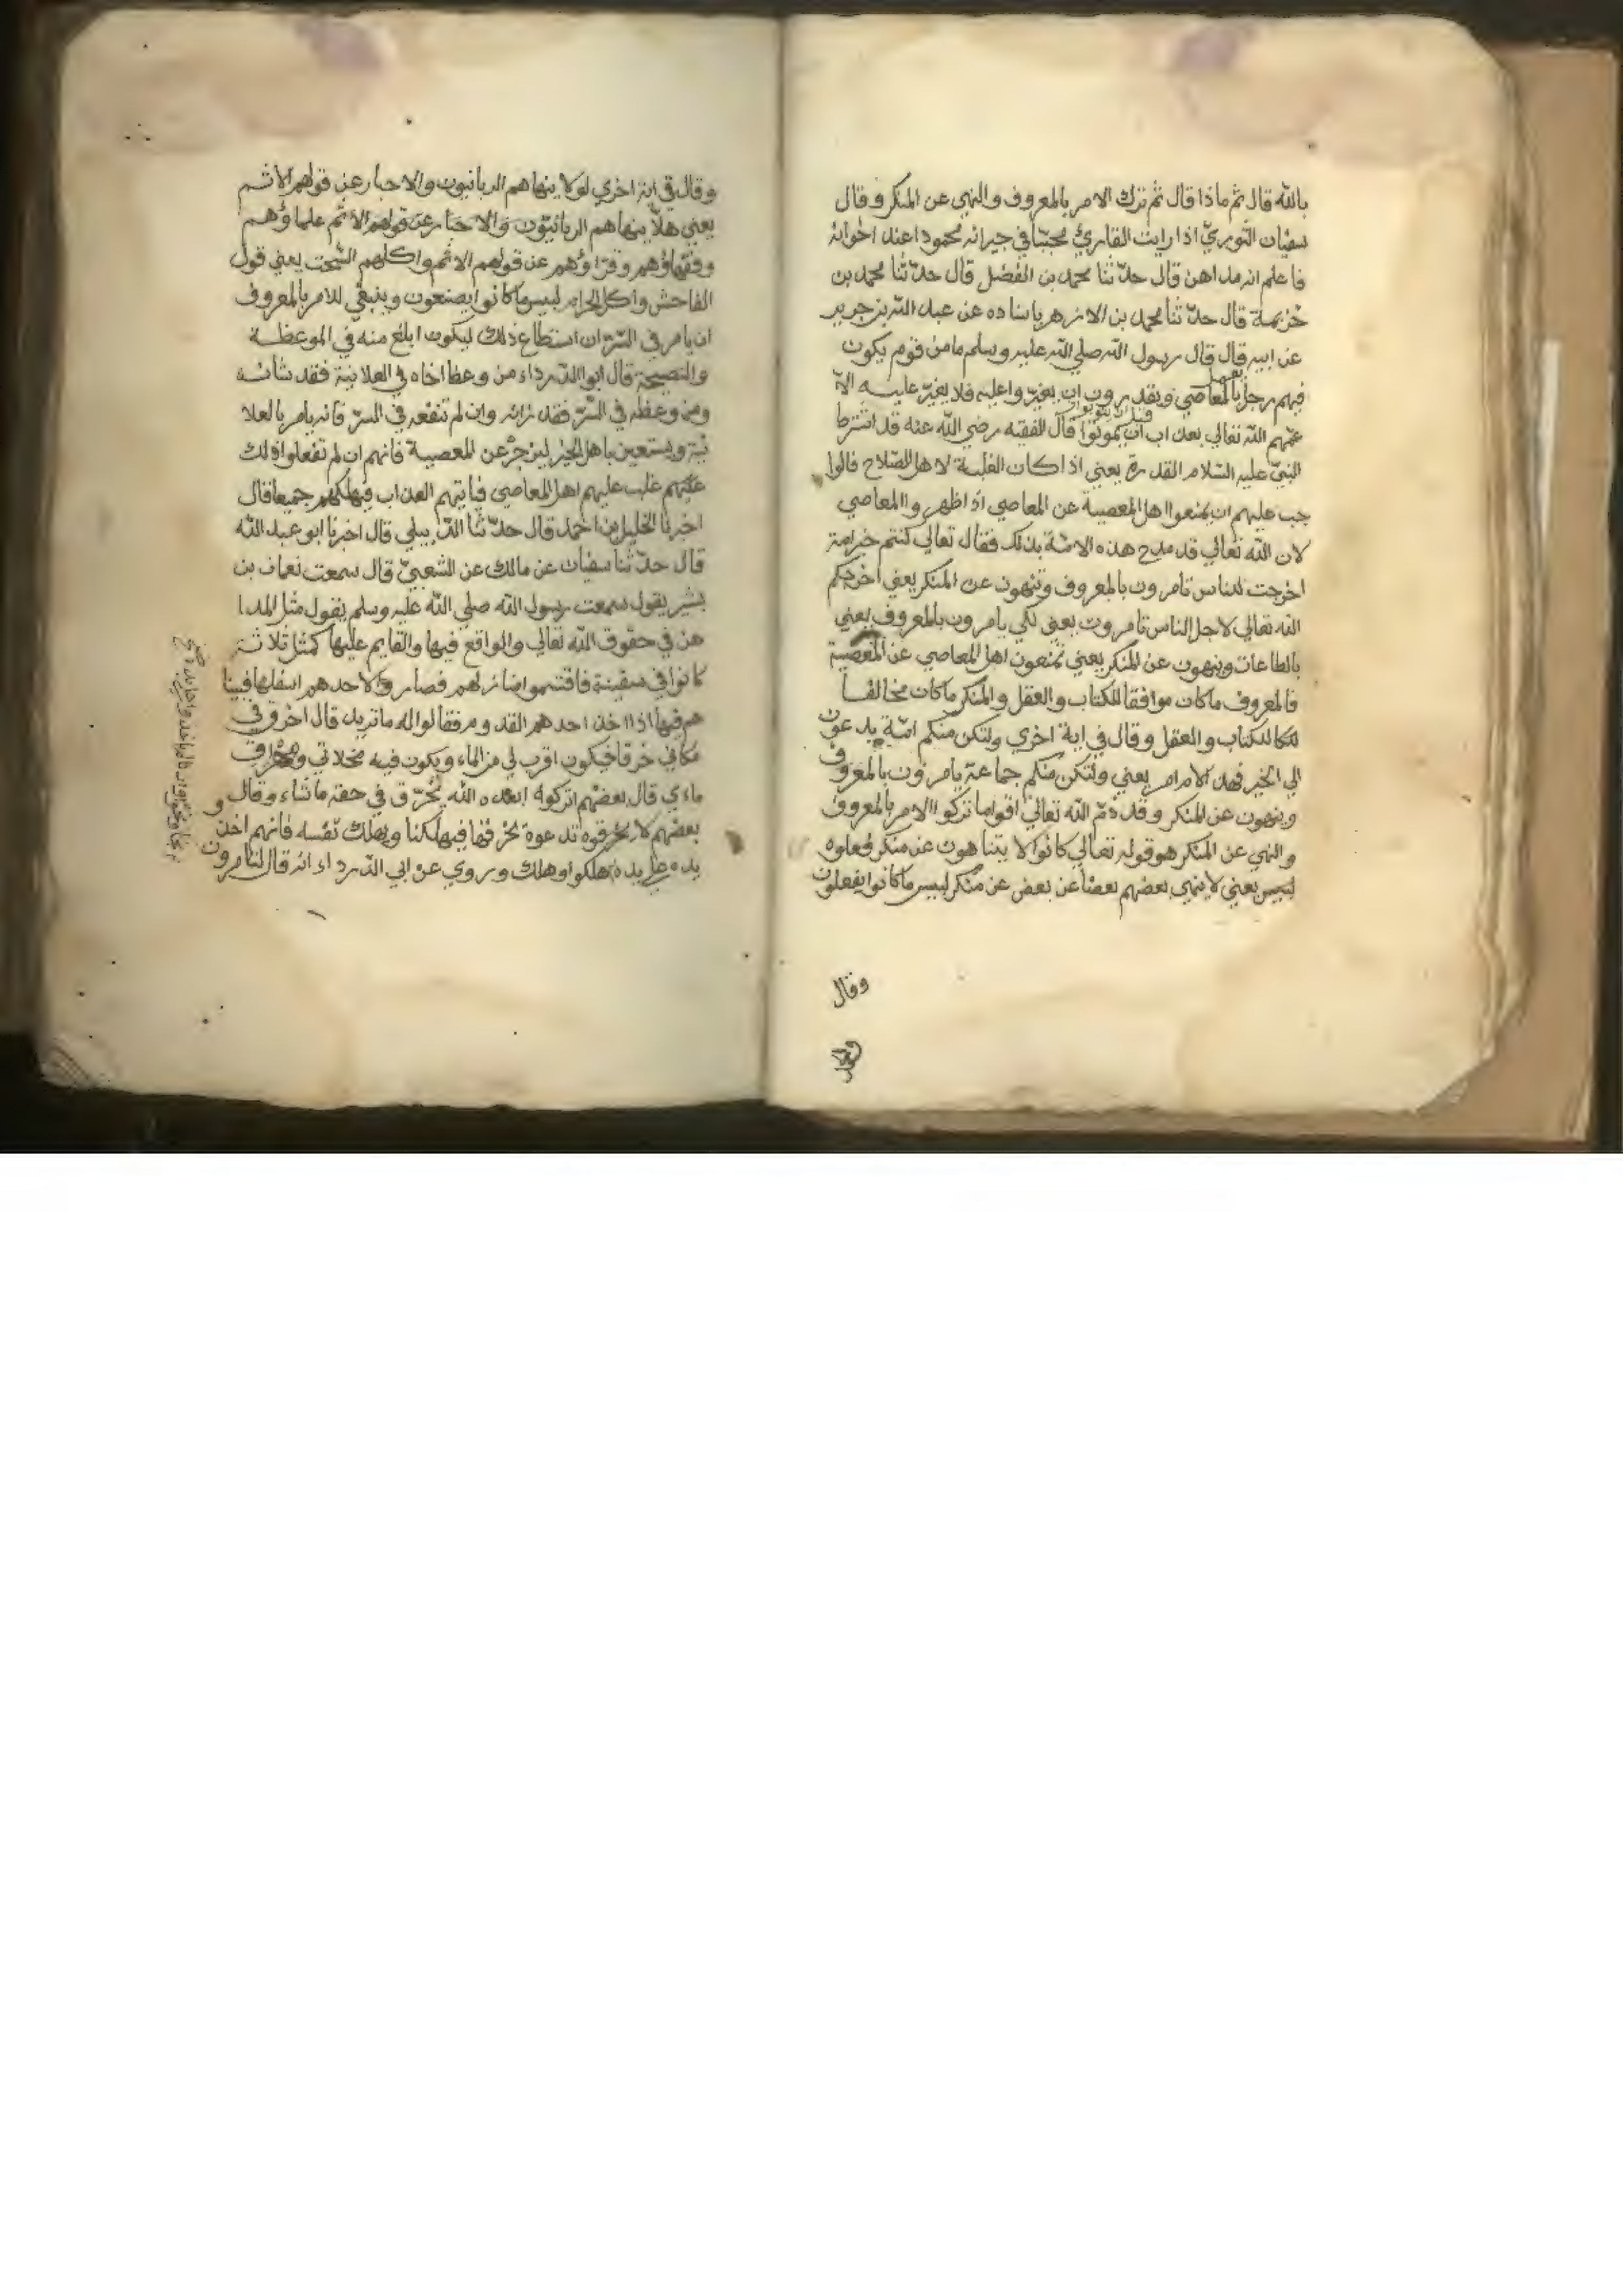 بالله قال ثم ماذا قال ثم ترك الامر بالمعروف والنهي عن المنكر وقال
سفيان الثوريّ اذا رايت القارئ محببّا في جيرانه محمودا عند اخوانه
فاعلم انه مداهن قال حدّثنا محمد بن الفضل قال حدّثنا محمد بن
خزيمة قال حدّثنا محمد بن الازهر باسناده عن عبد الله بن جرير
عن ابيه قال قال رسول الله صلي الله عليه وسلم مامن قوم يكون
فيهم رجل بالمعاصي ويقدرون ان يغيّروا عليه فلا يغيّر عليه الاّ
عمّهم الله تعالي بعذاب قبل ان يموتوا قال الفقيه رضي الله عنه قد اشترط
النبيّ عليه السّلام القدرة يعني اذا كان الغلبة لاهل الصّلاح فالوا
جب عليهم ان يمنعوا اهل المعصية عن المعاصي اذا ظهروا المعاصي
لان الله تعالي قد مدح هذه الامّة بذلك فقال تعالي كنتم خير امة
اخرجت للناس تامرون بالمعروف وتنهون عن المنكر يعني اخرجكم
الله تعالي لاجل الناس تامرون يعني لكي يامرون بالمعروف يعني
بالطاعات وينهون عن المنكر يعني تمنعون اهل المعاصي عن المعصية
فالمعروف ماكان موافقا للكتاب والعقل والمنكر ماكان مخالفا
للكتاب والعقل وقال في اية اخري ولتكن منكم امّة يدعون
الي الخير فهذ الامر امر يعني ولتكن منكم جماعة يامرون بالمعروف
وينهون عن المنكر وقد ذمّ الله تعالي اقواما تركوا الامر بالمعروف
والنهي عن المنكر هو قوله تعالي كانوا لا يتناهون عن منكر فعلوه
لبيس يعني لا ينهي بعضهم بعضا عن بعض عن منكر لبيس ماكانوا يفعلون
وقال
وقال في اية اخري لولا ينهاهم الربانيون والاحبار عن قولهم الاثم
يعني هلاّ ينهاهم الربانيّون والاحبار عن قولهم الاثم علماؤهم
وفقهاؤهم وقرّاؤهم عن قولهم الاثم واكلهم السّحت يعني قول
الفاحش واكل الحرام لبيس ماكانوا يصنعون وينبغي للامر بالمعروف
ان يامر في السّرّ ان استطاع ذلك ليكون ابلغ منه في الموعظة
والنصيحة قال ابو الدّرداء من وعظ اخاه في العلانية فقد شانه
ومن وعظه في السّرّ فقد زانه وان لم تنفعه في السرّ فانه يامر بالعلا
نية ويستعين باهل الخير لينزجرُ عن المعصية فانهم ان لم تفعلوا ذلك
عليهم غلب عليهم اهل المعاصي فياتيهم العذاب فيهلكهم جميعا قال
اخبرنا الخليل بن احمد قال حدّثنا الدّبيلي قال اخبرنا ابو عبد الله
قال حدّثنا سفيان عن مالك عن الشعبيّ قال سمعت نعمان بن
بشير يقول سمعت رسول الله صلي الله عليه وسلم يقول مثل المدا
هن في حقوق الله تعالي والواقع فيها والقايم عليها كمثل ثلاثة
كانوا في سفينة فاقتسموا منازلهم فصار لاحدهم اسفلها فبينا
هم فيها اذا اخذ احدهم القدوم فقالوا له ماتريد قال اخرق في
مكاني خرقا فيكون اقرب لي من الماء ويكون فيه مخلاتي ومهراق
ماءي قال بعضهم اتركوه ابعده الله يُخرّق في حقه ماشاء وقال
بعضهم لا تدعوه يخرقها فيهلكنا ويهلك نفسه فانهم اخذوا
يده هلكوا وهلك وروي عن ابي الدّرداء انه قال لتامرون